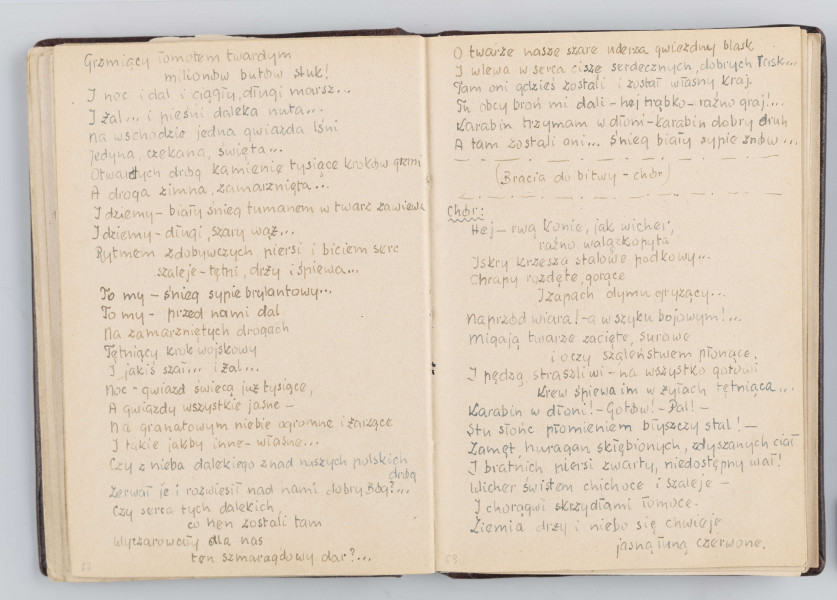 Grzmiący łomotem twardym
milionów butów stuk!
I noc i dal i ciągły, długi marsz...
I żal... i pieśni daleka nuta...
Na wschodzie jedna gwiazda lśni
Jedyna, czekana, święta...
Otwartych dróg kamienie tysiące kroków grzmi
A droga zimna, zamarznięta...
Idziemy – biały śnieg tumanem w twarz zawiewa
Idziemy – długi, szary wąż...
Rytmem zdobywczych piersi i biciem serc
szaleje – tętni, drży i śpiewa...
To my – śnieg sypie brylantowy...
To my – przed nami dal
Na zamarzniętych drogach
Tętniący krok wojskowy
I jakiś szał... i żal...
Noc – gwiazd świecą już tysiące,
A gwiazdy wszystkie jasne –
Na granatowym niebie ogromne i żarzące
I takie jakby inne – własne...
Czy z nieba dalekiego znad naszych polskich
dróg
Zerwał je i rozwiesił nad nami dobry Bóg?...
Czy serca tych dalekich,
co hen zostali tam
Wyczarowały dla nas
ten szmaragdowy dar?...
O twarze nasze szare uderza gwiezdny blask
I wlewa w serca ciszę serdecznych, dobrych łask...
Tam oni gdzieś zostali i został własny kraj.
Tu obcy broń mi dali – hej trąbko – raźno graj!...
Karabin trzymam w dłoni – karabin dobry druh
A tam zostali oni... śnieg biały sypie znów...
(Bracia do bitwy – chór)
Chór:
Hej – rwą konie, jak wicher,
raźno walą z kopyta
Iskry krzesza stalowe podkowy...
Chrapy rozdęte, gorące
I zapach dymu gryzący...
Naprzód wiara! – a w szyku bojowym!...
Migają twarze zacięte, surowe
i oczy szaleństwem płonące.
I pędzą, straszliwi – na wszystko gotowi
Krew śpiewa im w żyłach tętniąca...
Karabin w dłoni! – Gotów! – Pal! –
Stu słońc płomieniem błyszczy stal! –
Zamęt, huragan skłębionych, zdyszanych ciał
I bratnich piersi zwarty, niedostępny wał!
Wicher świstem chichoce i szaleje –
I chorągwi skrzydłami łomoce.
Ziemia drży i niebo się chwieje
jasną łuną czerwone.